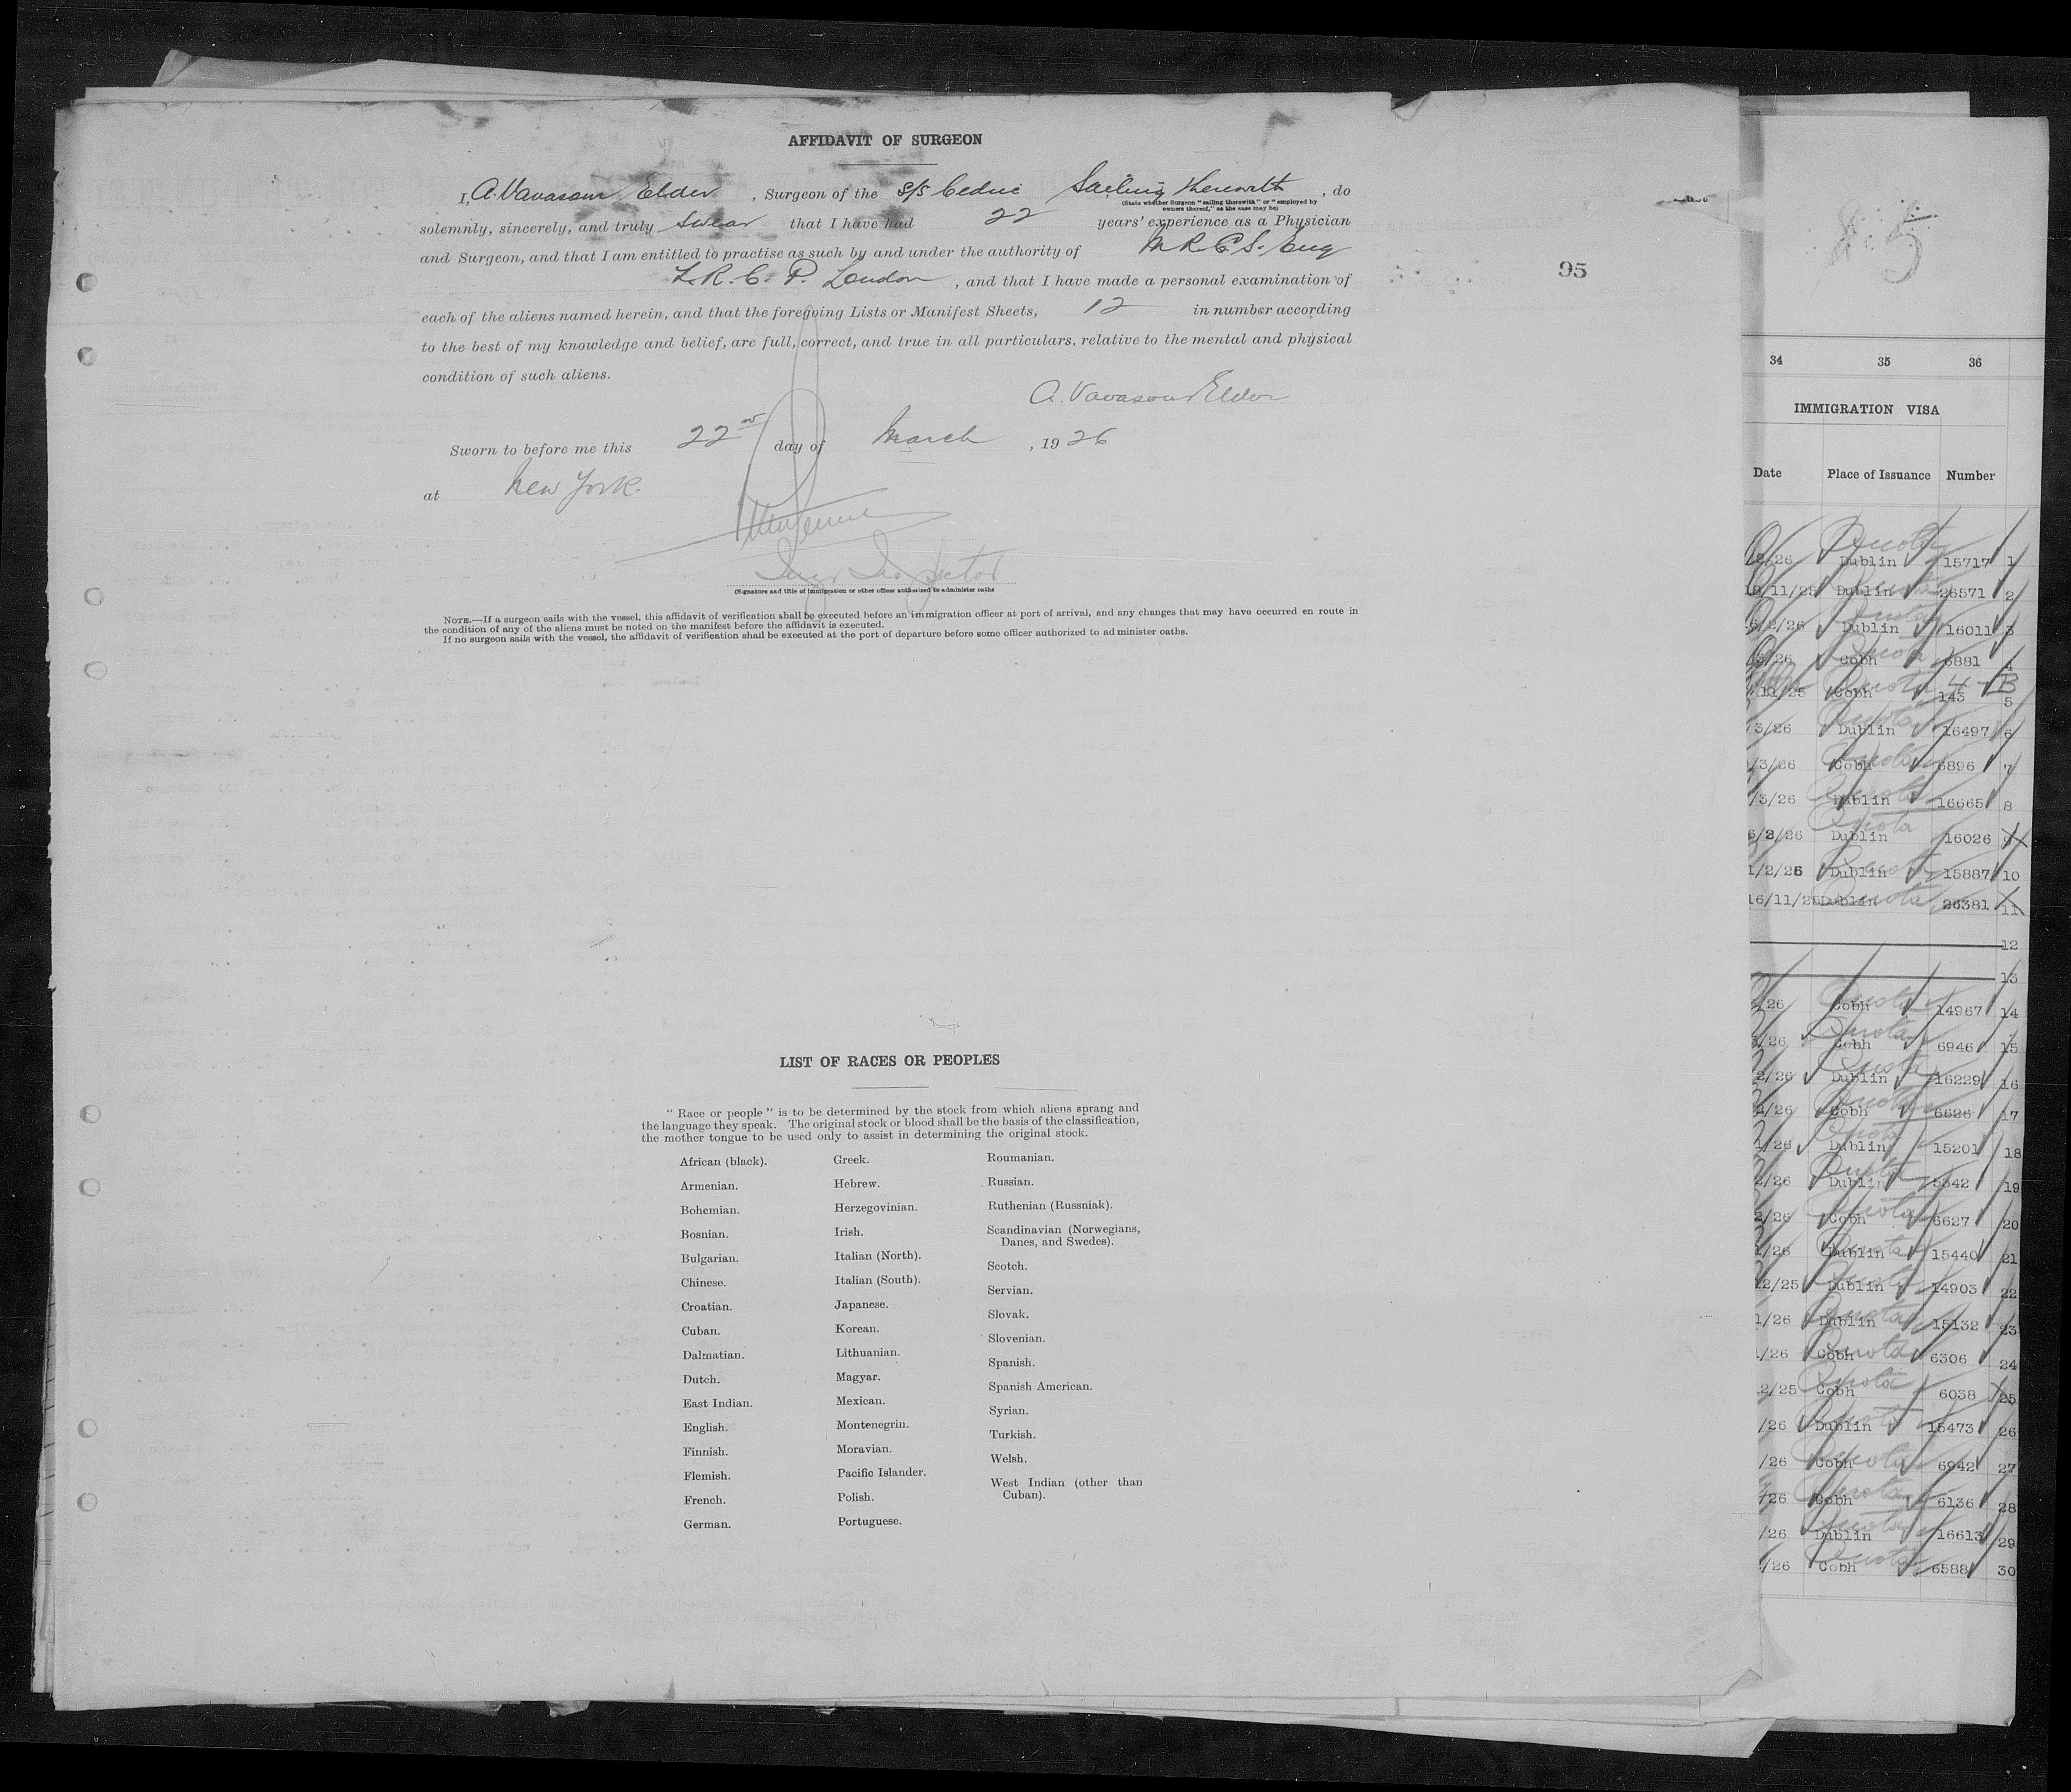 AFFIDAVIT OF SURGEON
I, A. Vavasour Elder, Surgeon of the S/S Cedric Sailing therewith, do
(State whether Surgeon "sailing therewith" or "employed by
owners thereof," as the case may be)
solemnly, sincerely, and truly swear that I have had 22 years' experience as a Physician
and Surgeon, and that I am entitled to practise as such by and under the authority of M.R.C.S. Eng
L.R.C.P. London, and that I have made a personal examination of
each of the aliens named herein, and that the foregoing Lists or Manifest Sheets, 12 in number according
to the best of my knowledge and belief, are full, correct, and true in all particulars, relative to the mental and physical
condition of such aliens.
A. Vavasour Elder
Sworn to before me this 22nd day of March, 1926
at New York.
Inspector
(Signature and title of immigration or other officer authorized to administer oaths
NOTE.—If a surgeon sails with the vessel, this affidavit of verification shall be executed before an immigration officer at port of arrival, and any changes that may have occurred en route in
the condition of any of the aliens must be noted on the manifest before the affidavit is executed.
If no surgeon sails with the vessel, the affidavit of verification shall be executed at the port of departure before some officer authorized to administer oaths.
95
LIST OF RACES OR PEOPLES
"Race or people" is to be determined by the stock from which aliens sprang and
the language they speak. The original stock or blood shall be the basis of the classification,
the mother tongue to be used only to assist in determining the original stock.
African (black).
Armenian.
Bohemian.
Bosnian.
Bulgarian.
Chinese.
Croatian.
Cuban.
Dalmatian.
Dutch.
East Indian.
English.
Finnish.
Flemish.
French.
German.
Greek.
Hebrew.
Herzegovinian.
Irish.
Italian (North).
Italian (South).
Japanese.
Korean.
Lithuanian.
Magyar.
Mexican.
Montenegrin.
Moravian.
Pacific Islander.
Polish.
Portuguese.
Roumanian.
Russian.
Ruthenian (Russniak).
Scandinavian (Norwegians,
Danes, and Swedes).
Scotch.
Servian.
Slovak.
Slovenian.
Spanish.
Spanish American.
Syrian.
Turkish.
Welsh.
West Indian (other than
Cuban).
85
34 35 36
IMMIGRATION VISA
Date Place of Issuance Number
/26 Quota Dublin 15717 1
/11/25 Quota Dublin 26571 2
/2/26 Quota Dublin 16011 3
/26 Quota Cobh 6881 4
/11/25 Quota Cobh 143 5
/3/26 Quota Dublin 16497 6
/3/26 Quota Cobh 6896 7
/3/26 Quota Dublin 16665 8
6/2/26 Quota Dublin 16026 9
1/2/26 Quota Dublin 15887 10
16/11/25 Quota Dublin 26381 11
12
13
/26 Quota Cobh 14967 14
/26 Quota Cobh 6946 15
2/26 Quota Dublin 16229 16
/26 Quota Cobh 6626 17
1/26 Quota Dublin 15201 18
2/26 Quota Dublin 5342 19
2/26 Quota Cobh 6627 20
1/26 Quota Dublin 15440 21
12/25 Quota Dublin 14903 22
1/26 Quota Dublin 15132 23
/26 Quota Cobh 6306 24
2/25 Quota Cobh 6038 25
/26 Quota Dublin 15473 26
/26 Quota Cobh 6942 27
/26 Quota Cobh 6136 28
/26 Quota Dublin 16613 29
/26 Quota Cobh 6588 30